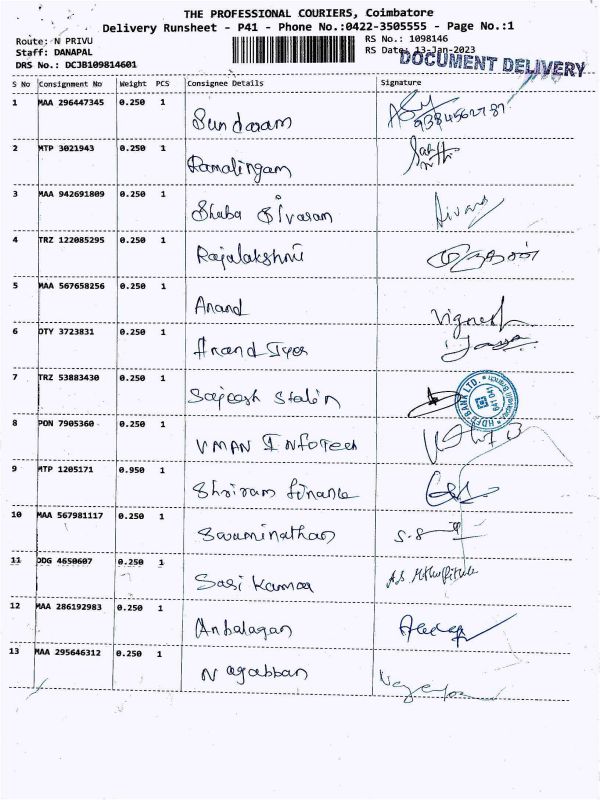 THE PROFESSIONAL COURIERS, Coimbatore
Delivery Runsheet - P41 - Phone No.:0422-3505555 - Page No.:1
Route: N PRIVU RS No.: 1098146
Staff: DANAPAL RS Date: 13-Jan-2023
DRS No.: DCJB109814601 DOCUMENT DELIVERY
S No Consignment No Weight PCS Consignee Details Signature
1 MAA 296447345 0.250 1 Sundaram 9384562787
2 MTP 3021943 0.250 1 Ramalingam
3 MAA 942691809 0.250 1 Shaba Sivaram
4 TRZ 122085295 0.250 1 Rajalakshmi
5 MAA 567658256 0.250 1 Anand Vignesh
6 DTY 3723831 0.250 1 Anand Iyer
7 TRZ 53883430 0.250 1 Sajeesh Stalin HDFC BANK LTD.
8 PON 7905360 0.250 1 VMAN INFOTECH
9 MTP 1205171 0.950 1 Shriram finance
10 MAA 567981117 0.250 1 Swaminathan
11 DDG 4650607 0.250 1 Sasi Kumar
12 MAA 286192983 0.250 1 Anbalagan
13 MAA 295646312 0.250 1 Nagabban